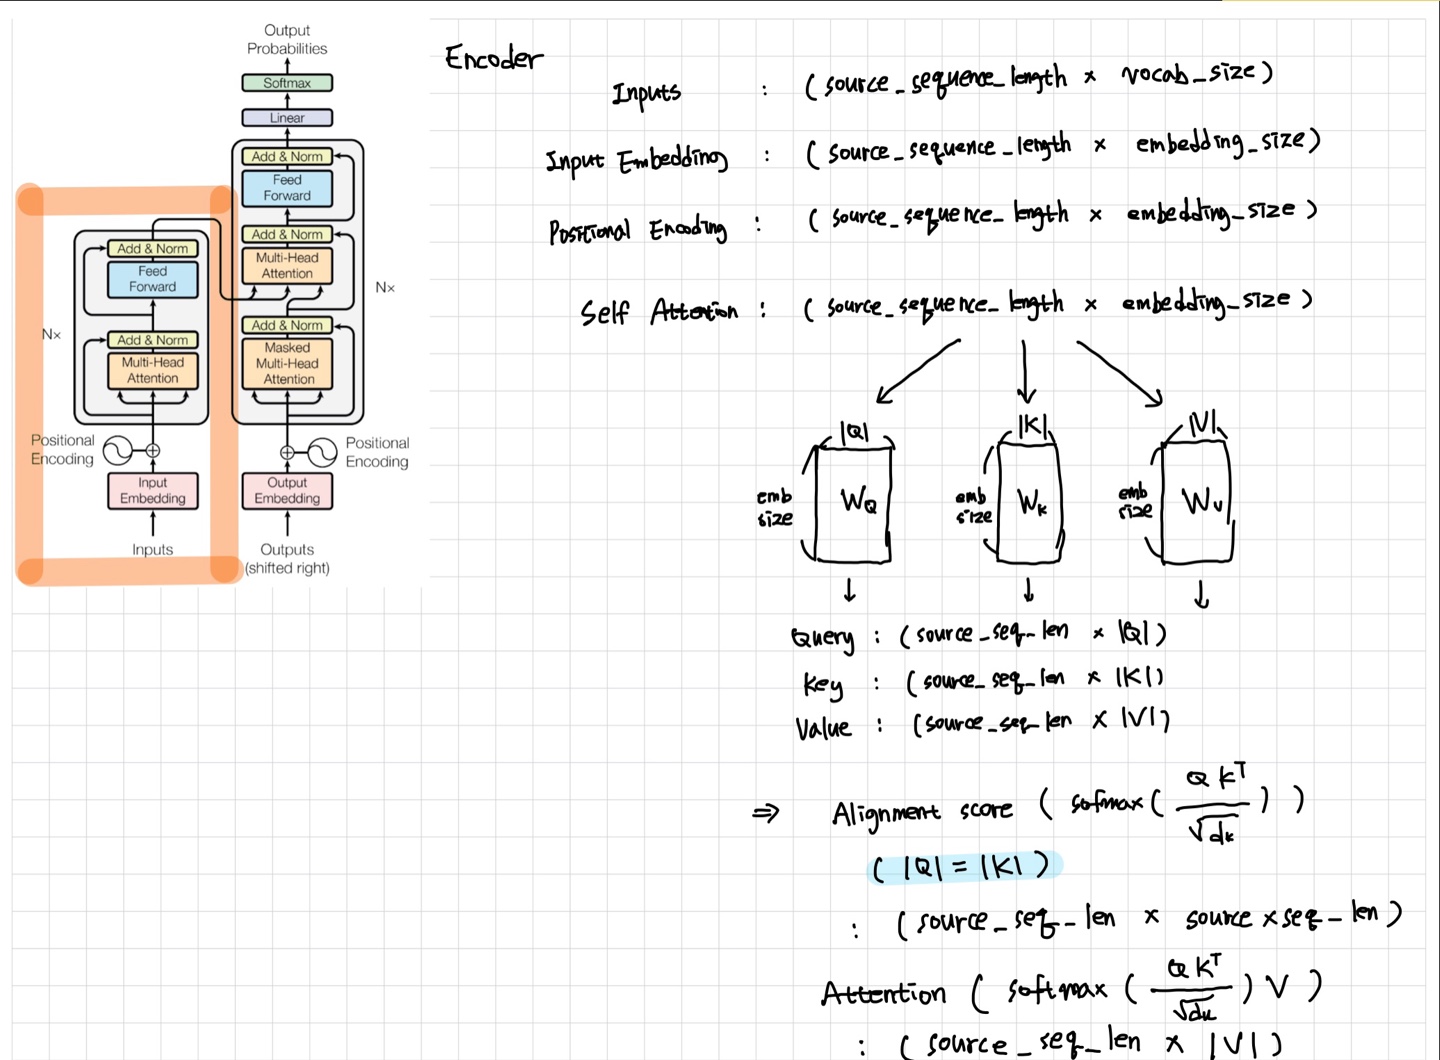 Output
Probabilities
Softmax
Linear
Add & Norm
Feed
Forward
Add & Norm
Multi-Head
Attention
Nx
Add & Norm
Masked
Multi-Head
Attention
Positional
Encoding
Output
Embedding
Outputs
(shifted right)
Add & Norm
Feed
Forward
Nx
Add & Norm
Multi-Head
Attention
Positional
Encoding
Input
Embedding
Inputs
Encoder
Inputs : (source_sequence_length × vocab_size)
Input Embedding : (source_sequence_length × embedding_size)
Positional Encoding : (source_sequence_length × embedding_size)
Self Attention : (source_sequence_length × embedding_size)
|Q| |K| |V|
emb size W_Q emb size W_K emb size W_V
Query : (source_seq_len × |Q|)
Key : (source_seq_len × |K|)
Value : (source_seq_len × |V|)
⇒ Alignment score (sofmax(QK^T/√dk))
(|Q| = |K|)
: (source_seq_len × source×seq_len)
Attention (softmax(QK^T/√dk)V)
: (source_seq_len × |V|)